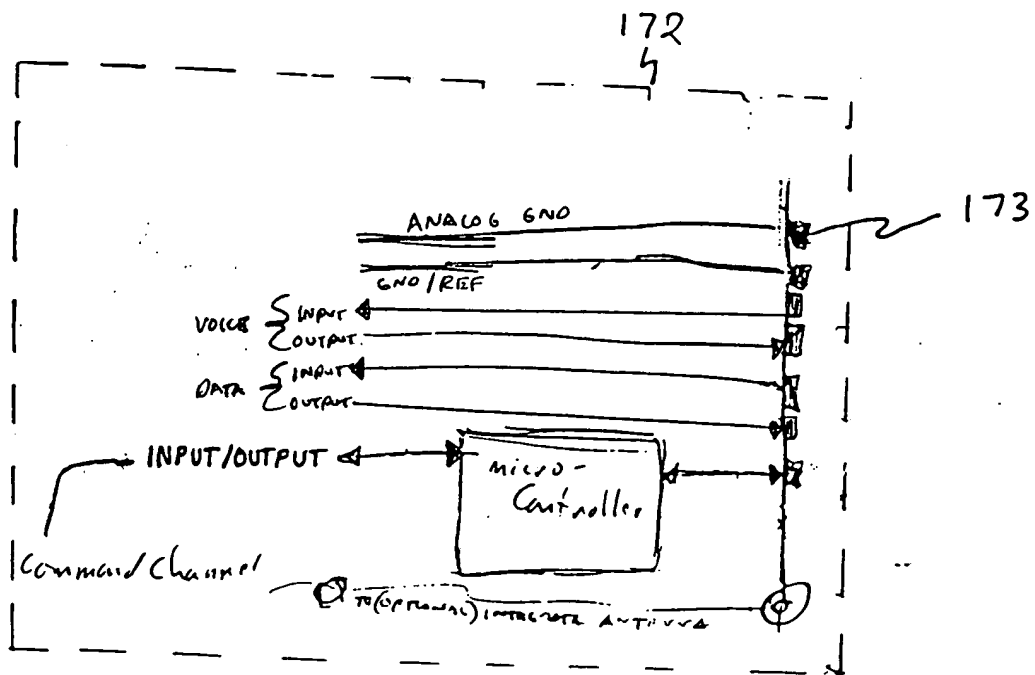 172
173
ANALOG GND
GND/REF
VOICE INPUT
OUTPUT
DATA INPUT
OUTPUT
INPUT/OUTPUT
micro-
Controller
Command Channel
TO (OPTIONAL) INTEGRATE ANTENNA